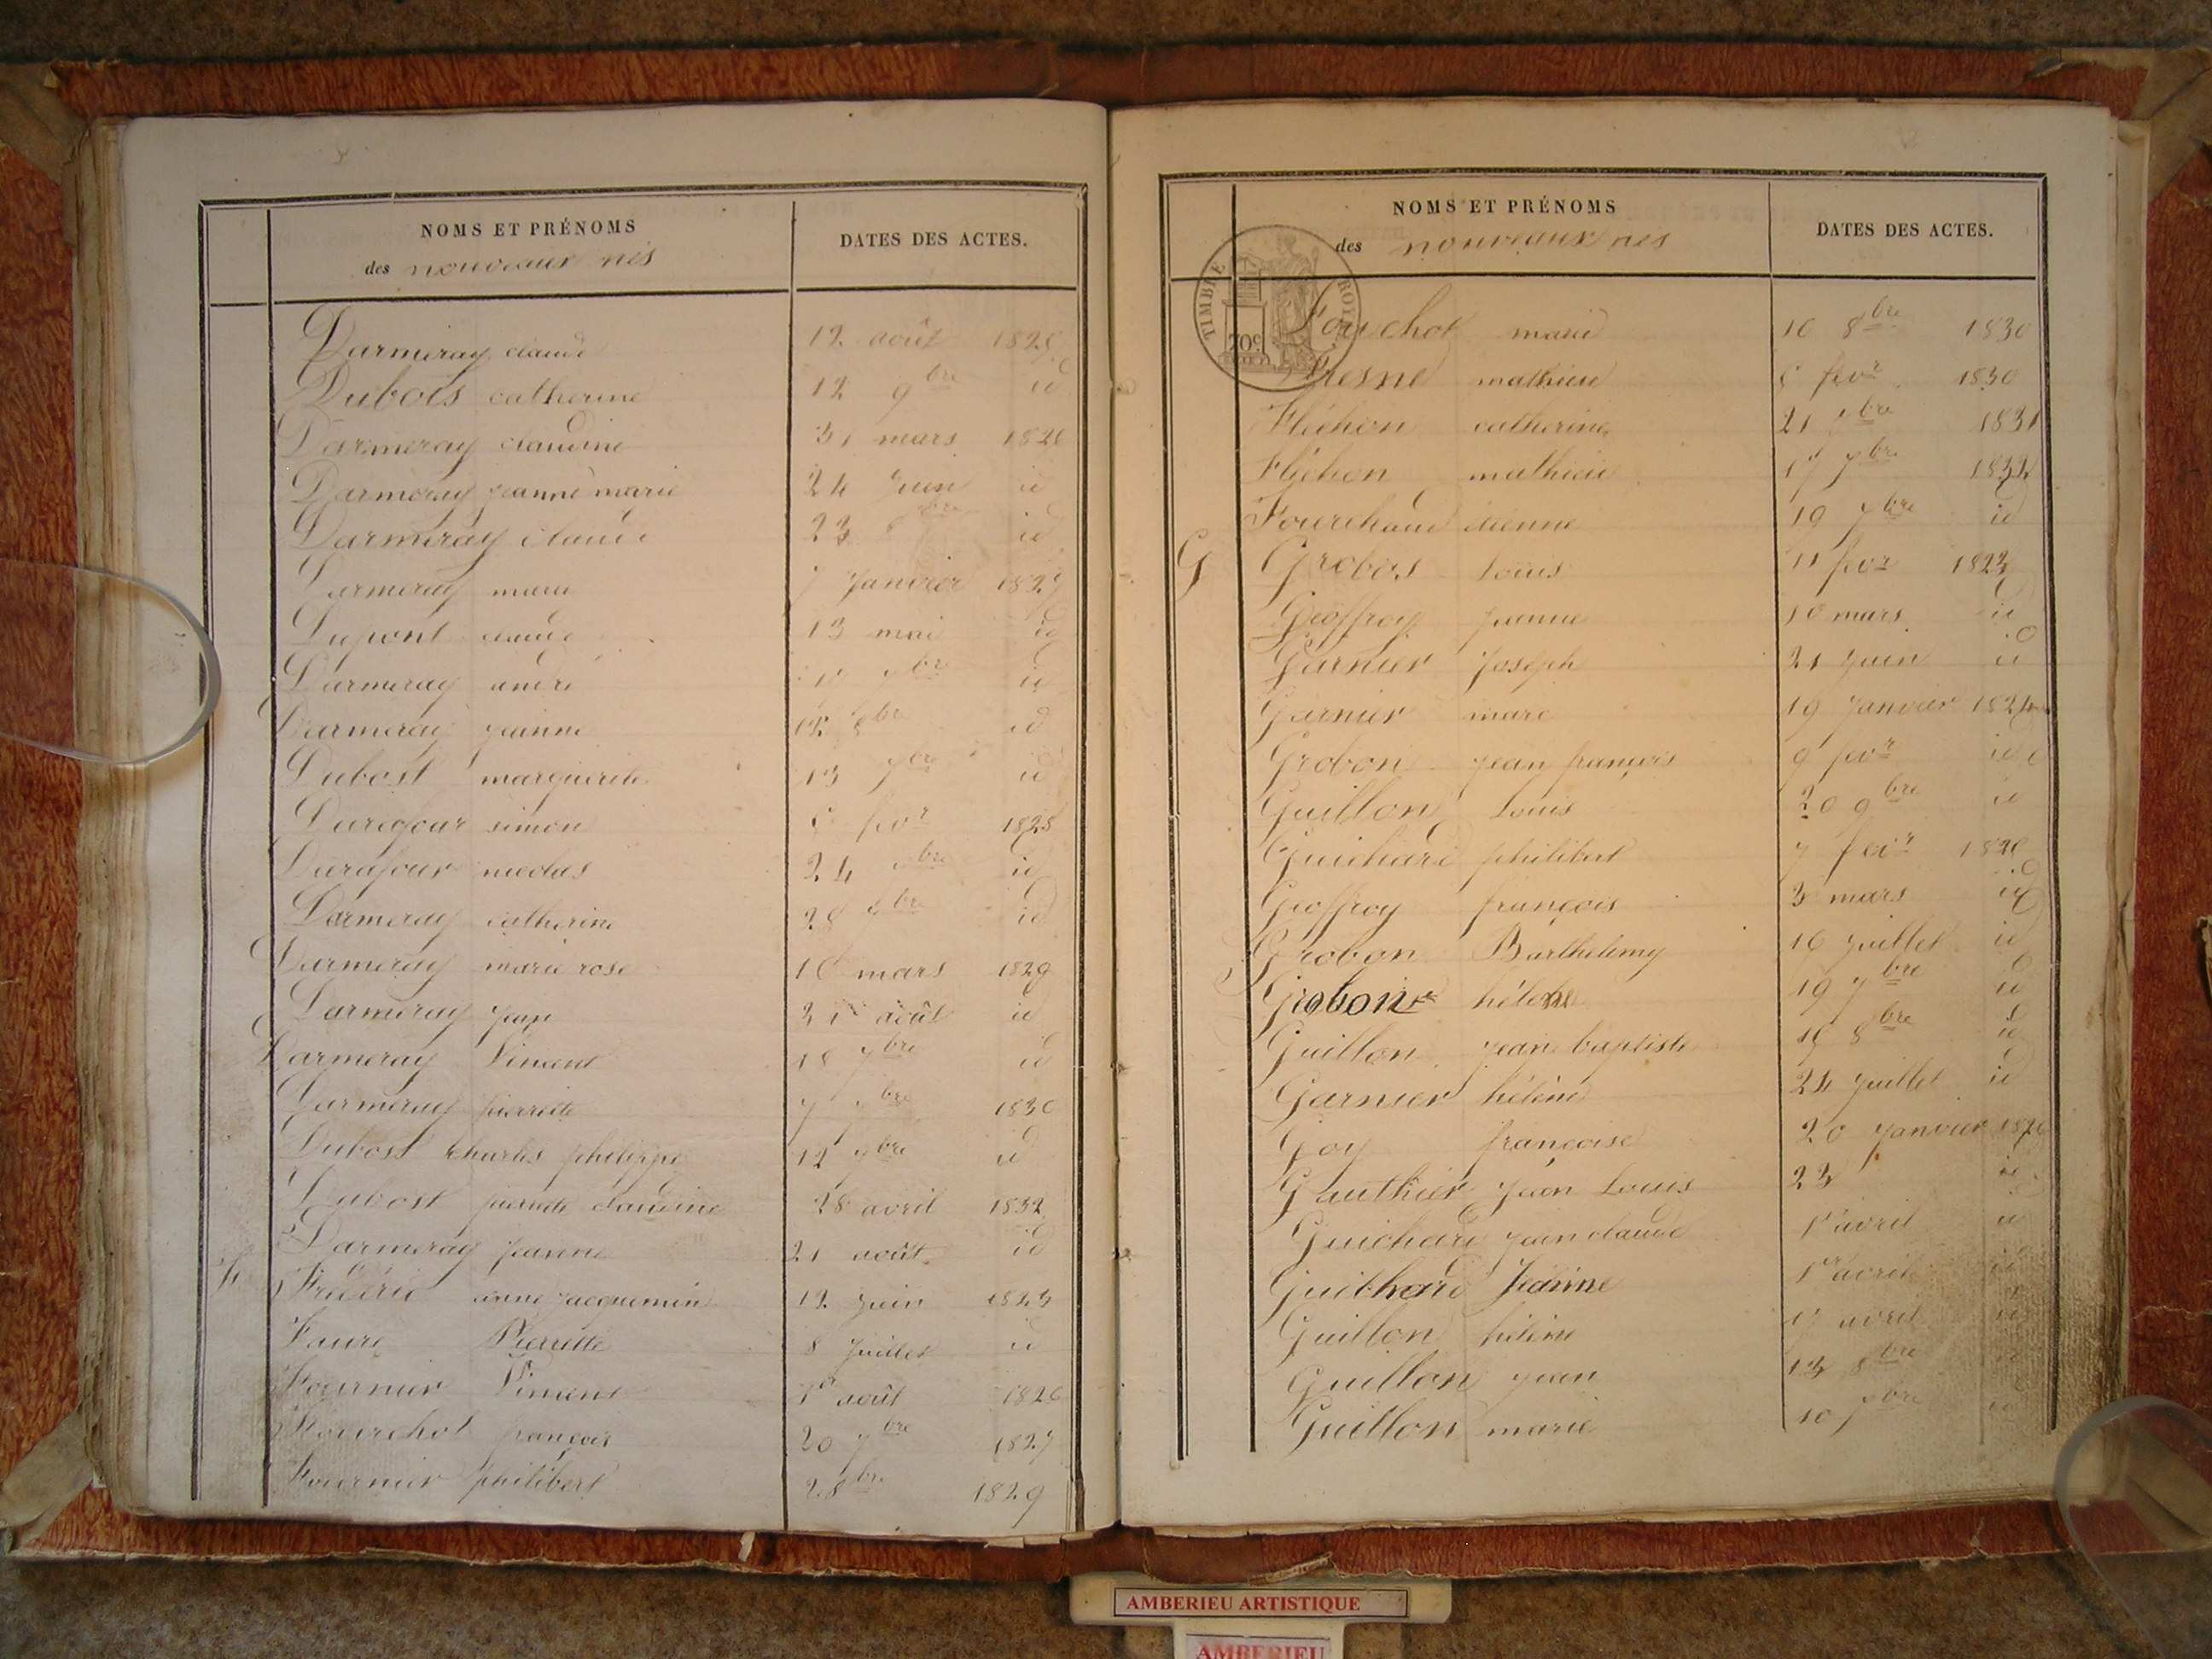 NOMS ET PRÉNOMS
des nouveaux nés
DATES DES ACTES.
Darmeray claude 12 août 1825
Dubois catherine 12 9bre id
Darmeray claudine 31 mars 1826
Darmeray jeanne marie 24 Juin id
Darmeray claude 23 id
Darmeray marie 7 Janvier 1827
Dupont claude 13 mai id
Darmeray andré id
Darmeray jeanne 12 8bre id
Dubost marguerite 13 7bre id
Durafour simon fevr 1828
Durafour nicolas 24 id
Darmeray catherine 28 id
Darmeray marie rose 16 mars 1829
Darmeray jean 21 août id
Darmeray Vincent 18 7bre id
Darmeray pierrette 7 1830
Dubost charles philippe 12 7bre id
Dubost pierrette claudine 28 avril 1832
Darmeray jeanne 21 août id
F Fréderic anne jacquemine 12 juin 1823
Faure Pierrette 8 Juillet id
Fournier Vincent 1er août 1826
Fourchot françois 20 7bre 1827
Fournier philibert 28bre 1829
NOMS ET PRÉNOMS
des nouveaux nés
DATES DES ACTES.
TIMBRE ROYAL
70c
Fouchot marie 10 8bre 1830
Fresne mathieu 8 fevr 1830
Fléchon catherine 21 1831
Fléchon mathieu 17 7bre 1832
Fourchaud étienne 19 7bre id
G Grobos Louis 11 fevr 1823
Geoffroy jeanne 10 mars id
Garnier Joseph 21 Juin id
Garnier marc 19 Janvier 1824
Grobon jean françois 9 fevr id
Guillon Louis 20 9bre id
Guichard philibert 7 fevr 1825
Geoffroy françois 3 mars id
Grobon Barthelemy 16 juillet id
Grobon hélène 19 7bre id
Guillon jean baptiste 19 8bre id
Garnier hélène 24 juillet id
Goy françoise 20 Janvier 1826
Gauthier jean Louis 23 id
Guichard jean claude 1er avril id
Guichard Jeanne 1er avril id
Guillon hélène 17 avril id
Guillon jean 13 8bre id
Guillon marie 10 7bre id
AMBERIEU ARTISTIQUE
AMBERIEU